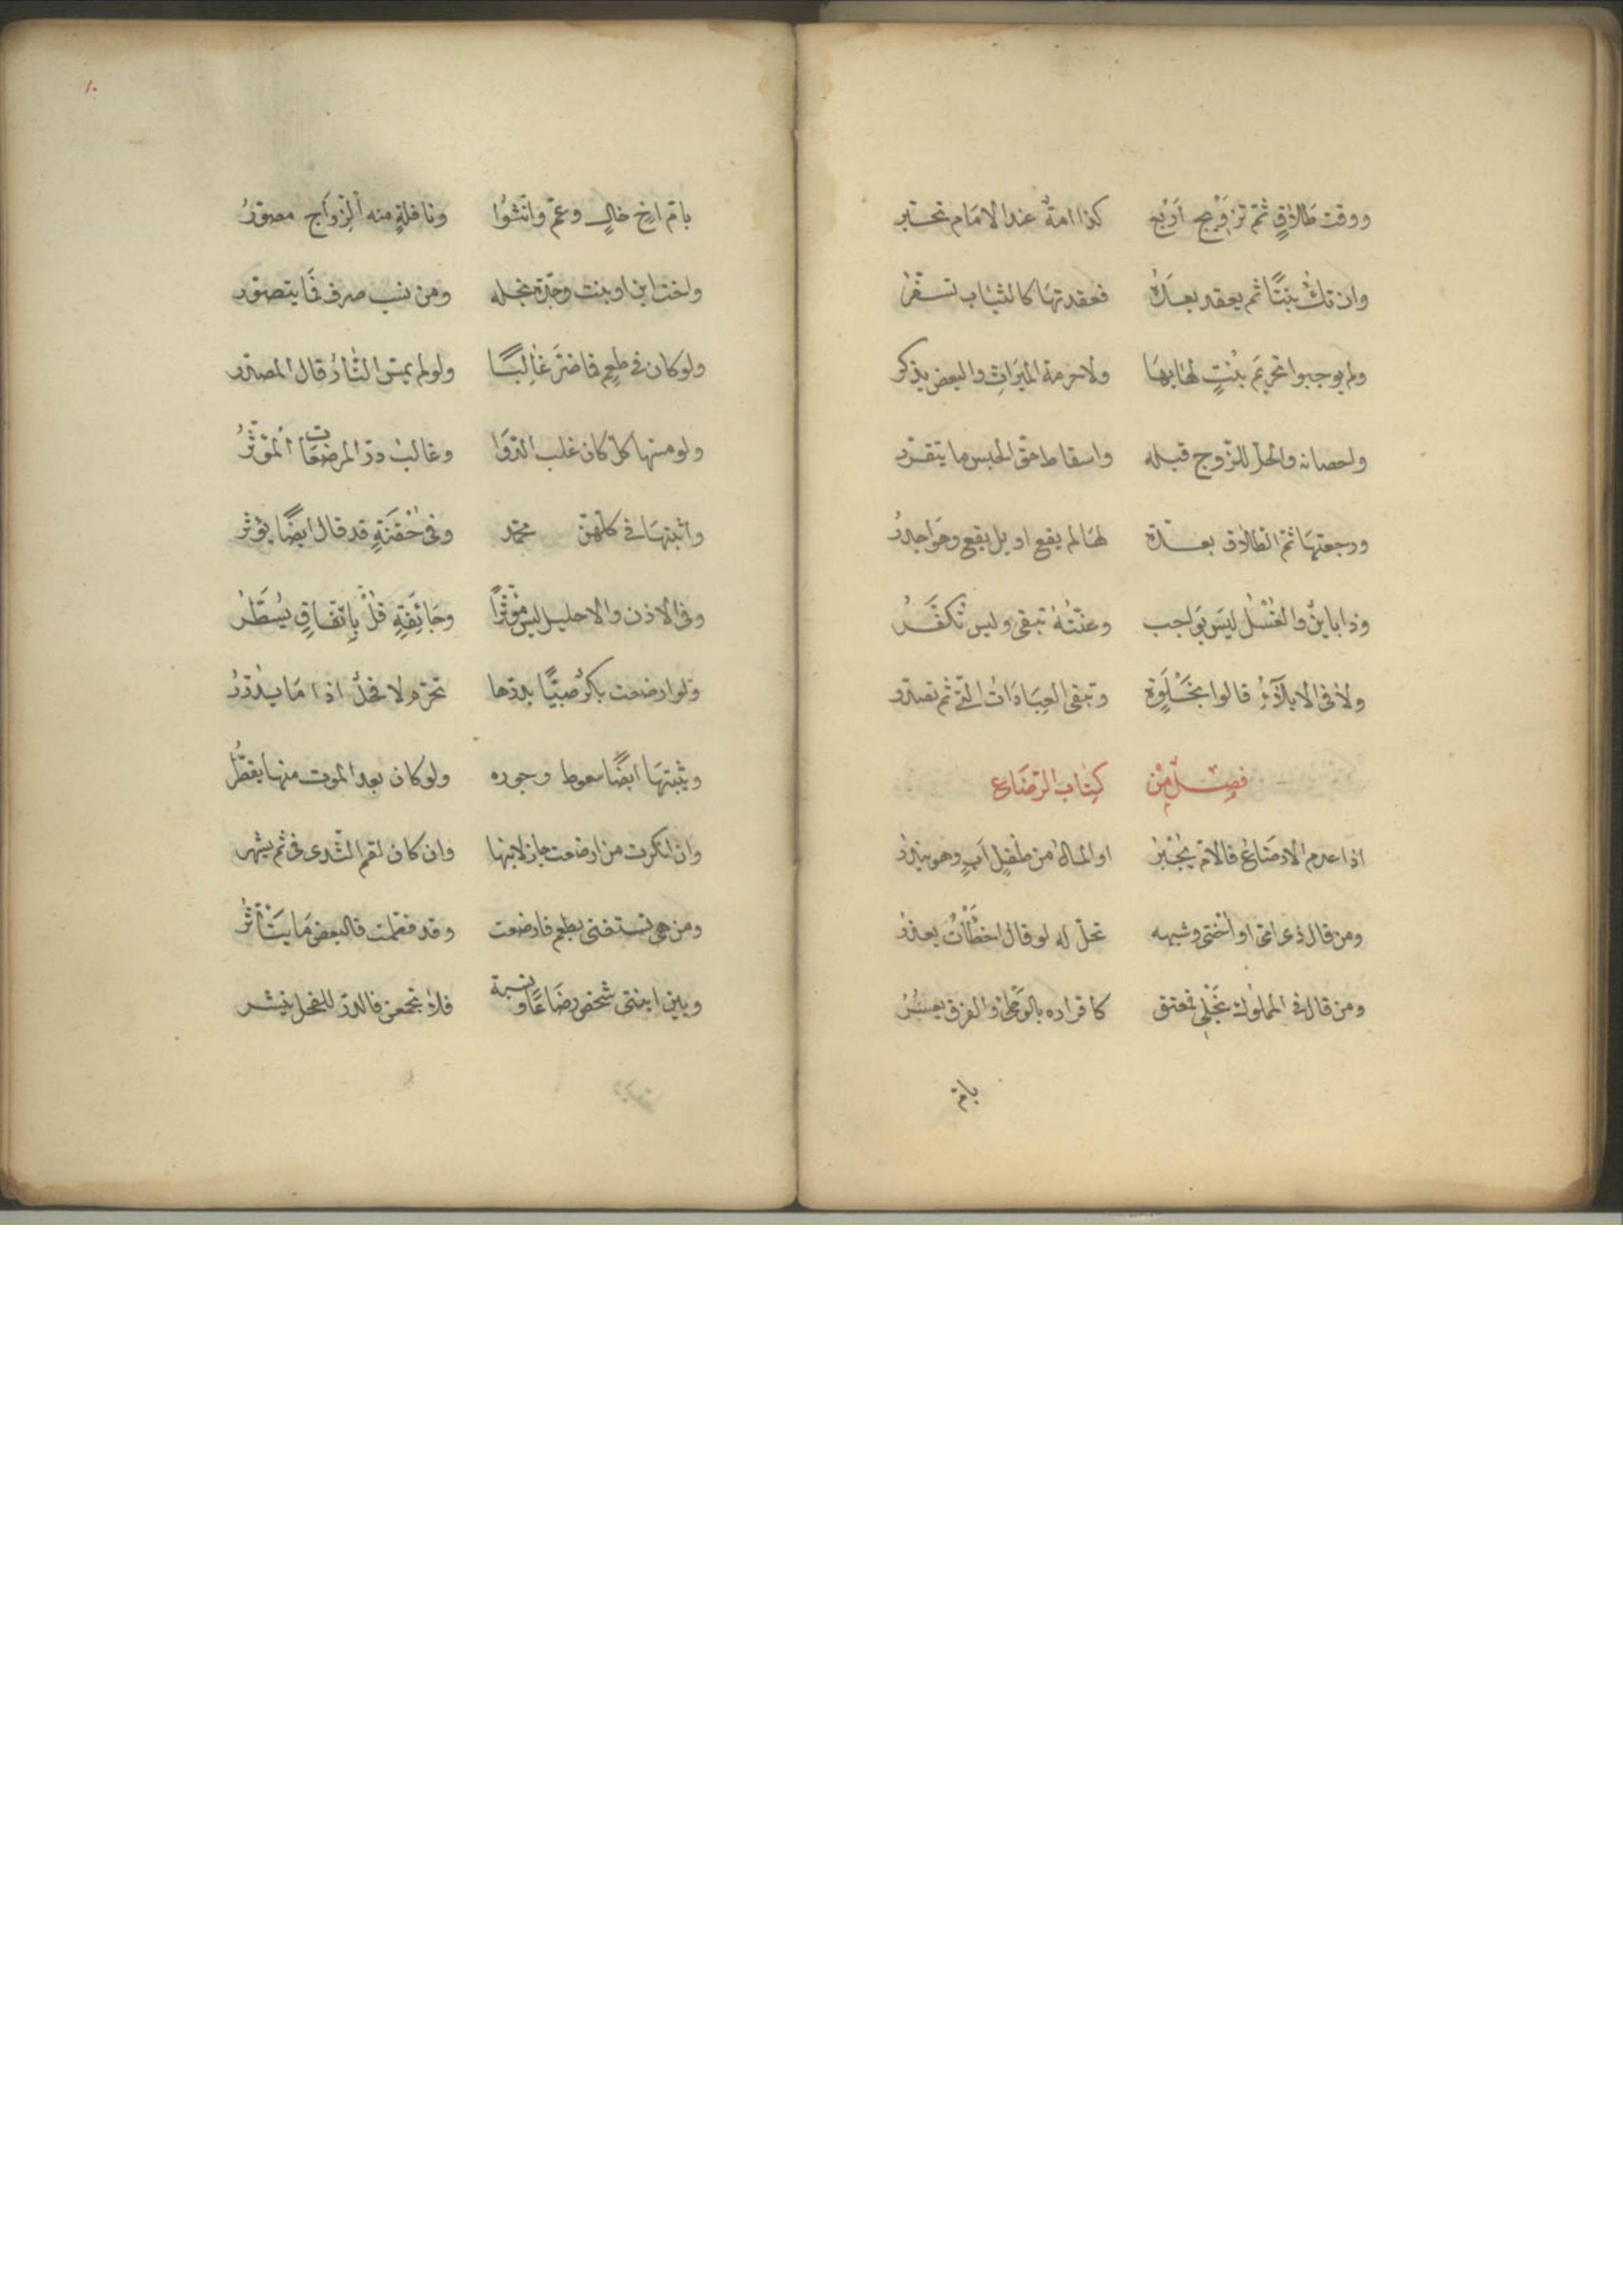 ووقت طلاق ثم تزويج اربع كذا امة عند الامام تحتبر
وان تك بنتا ثم يعقد بعده فعقدتها كالثياب تسفر
ولم يوجبوا تحريم بنت لها بها ولا حرمة الميراث والبعض يذكر
واحصانه والحل للزوج قبله واسقاط حق الحبس ما يتقرر
ورجعتها ثم الطلاق بعدة لها لم يقع او بل يقع وهو اجدر
وذا باين والغسل ليس بواجب وعنته تبقى وليس تكفر
ولا في الايلاء قالوا بخلوة وتبقى العبادات التي ثم تصدر
فصل من كتاب الرضاع
اذا عدم الارضاع فالام يجبر او المال من طفل اب وهو يندر
ومن قال ذي امي او اختي وشبهه تحل له لو قال اخطأت يعذر
ومن قال في المملوك نجلي فمعتق كاقراره بالوطئ والفرق يعسر
بام
١٠
بام اخ خال وعم وانثوا ونافلة منه الزواج مصور
واخت ابن او بنت وجدة نجله ومن نسب صرف فما يتصور
ولو كان في طعم فاضر غالبا ولو لم يمس النار قال المصدر
ولو منها كل كان غلب الدوا وغالب در المرضعات المؤثر
واثبتها في كلهن محمد وفي حقنة قد قال ايضا يؤثر
وفي الاذن والاحليل ليس مؤثرا وجائفة قل باتفاق يسطر
ولو ارضعت بكر صبيا بدرها تحرم لا فحل اذا ما يدرر
ويثبتها ايضا سعوط وجوره ولو كان بعد الموت منها يقطر
وان انكرت من ارضعت جاز لابنها وان كان لقم الثدي في ثم يشهر
ومن هي تستغني بطعم فارضعت وقد فطمت قال بعض ما يتأثر
وبين ابنتي شخص رضاعا ونسبة فلا تجمعن فالدر للفحل ينشر